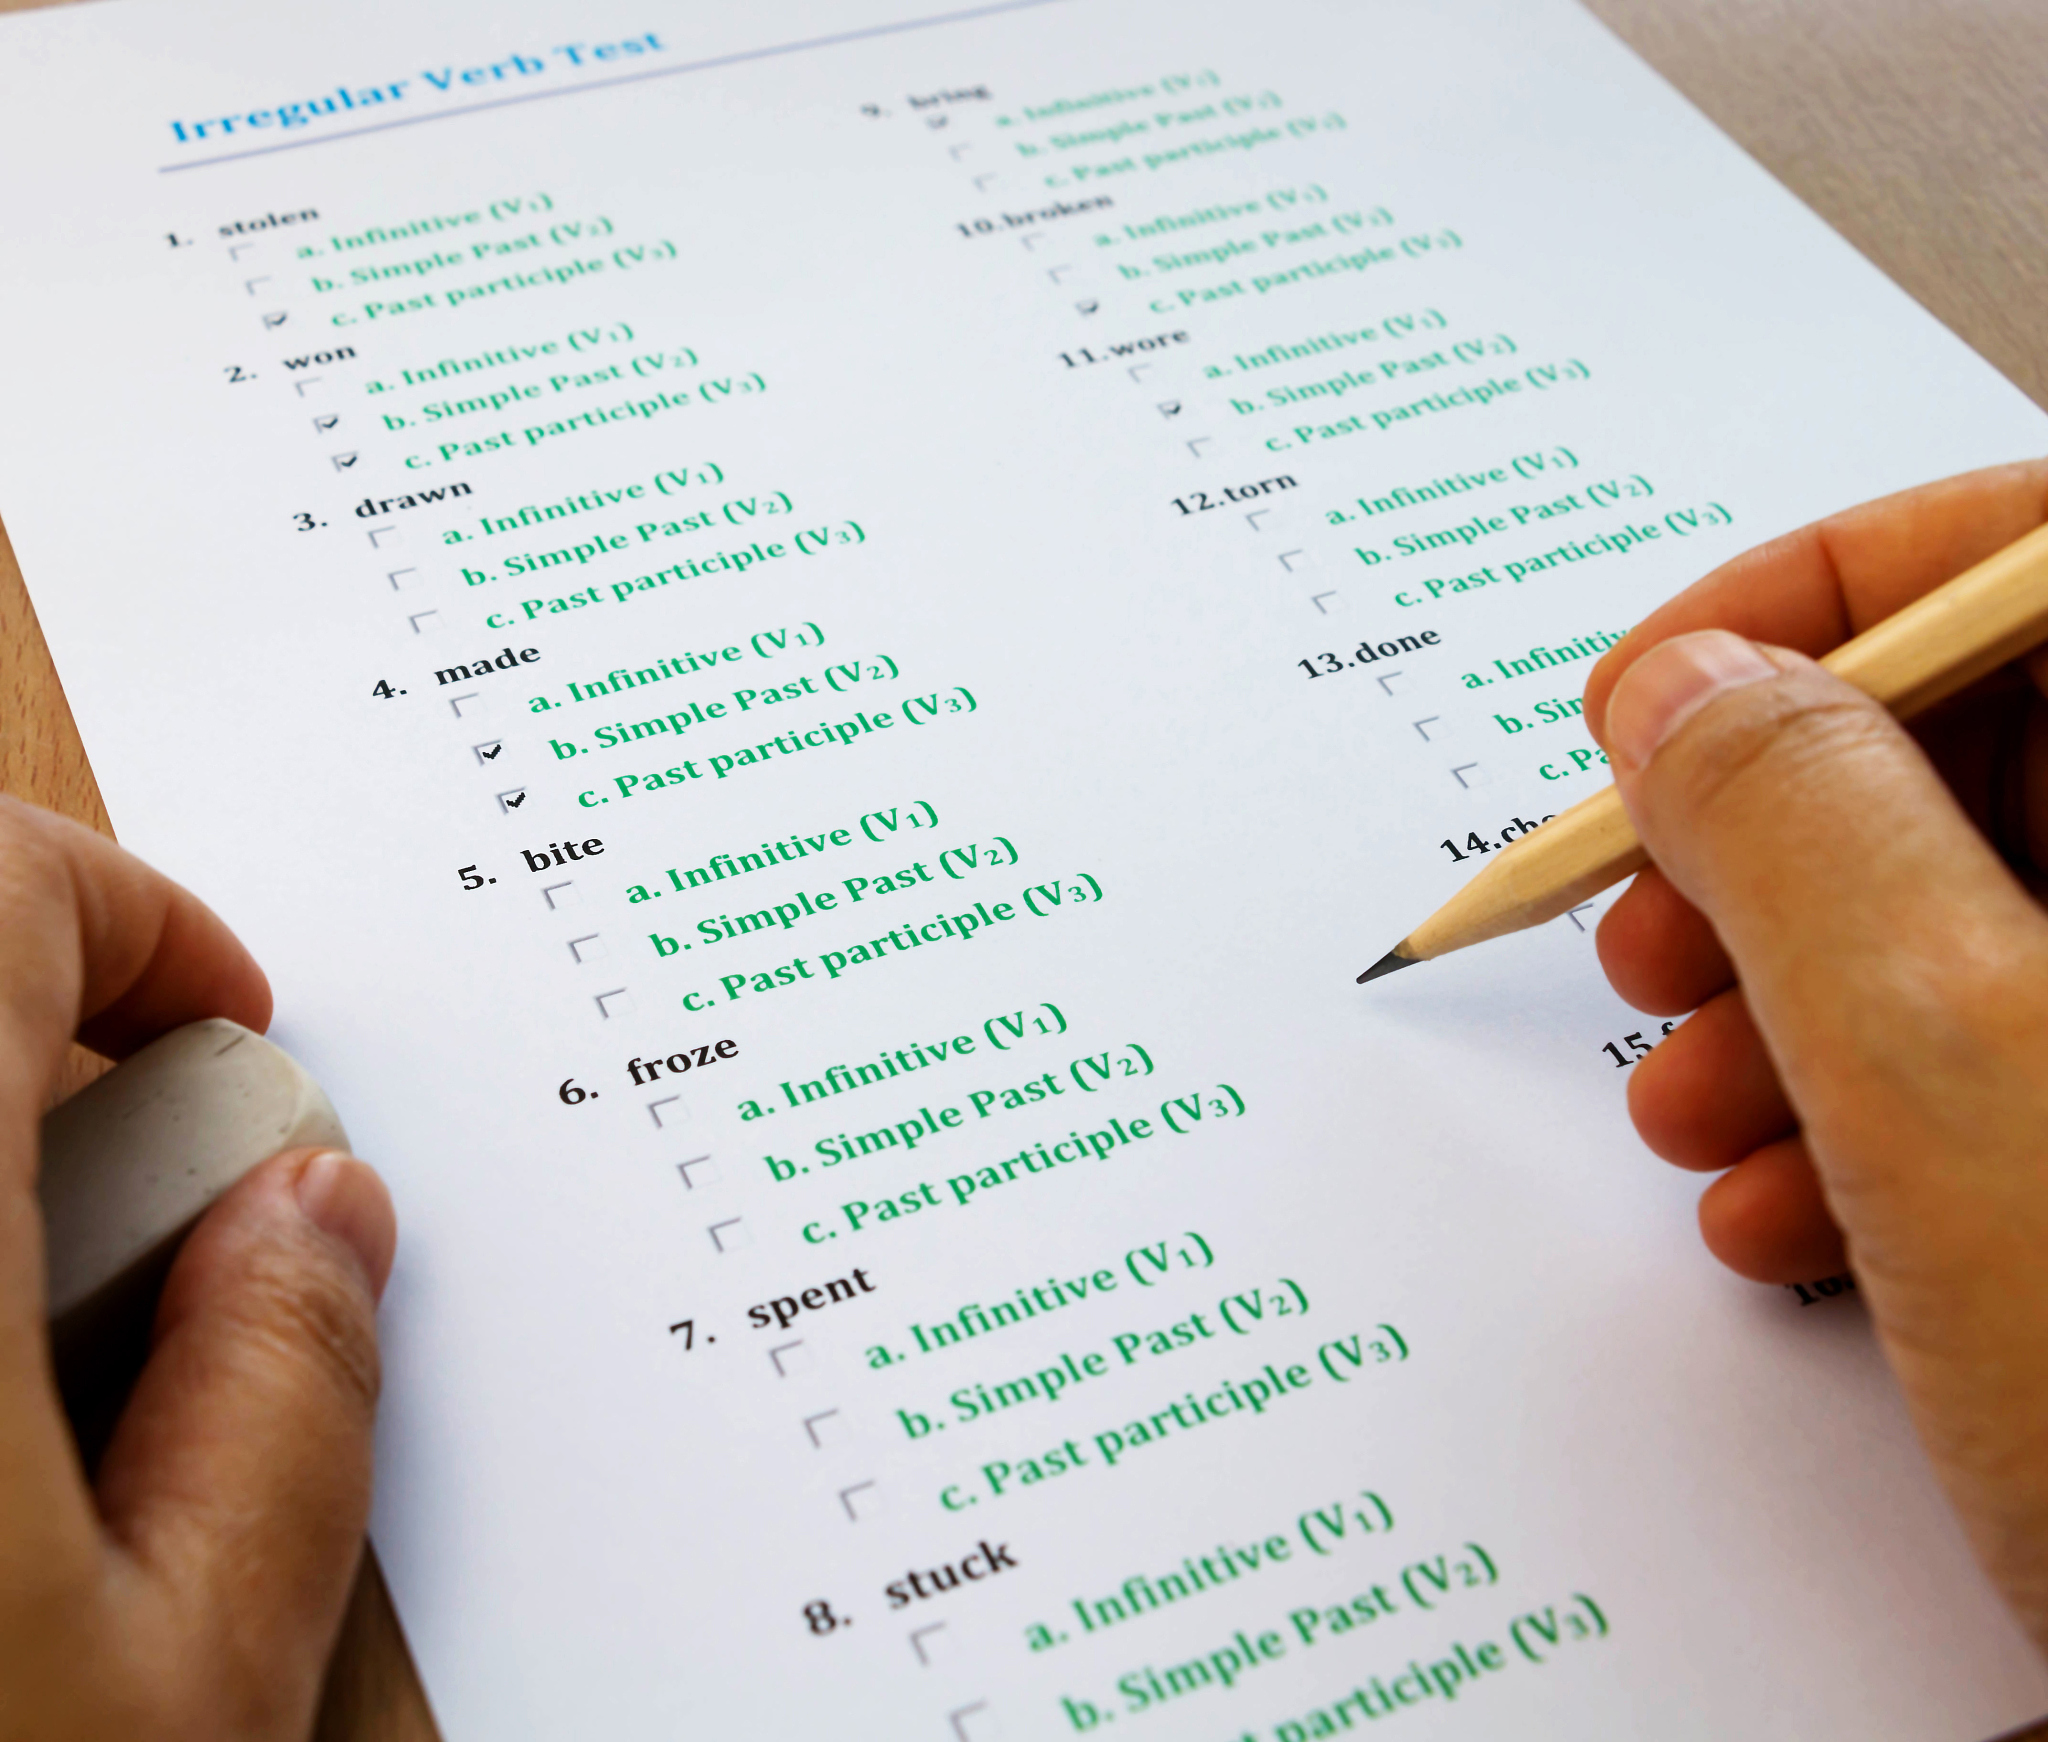 Irregular Verb Test
1. stolen
a. Infinitive (V1)
b. Simple Past (V2)
c. Past participle (V3)
2. won
a. Infinitive (V1)
b. Simple Past (V2)
c. Past participle (V3)
3. drawn
a. Infinitive (V1)
b. Simple Past (V2)
c. Past participle (V3)
4. made
a. Infinitive (V1)
b. Simple Past (V2)
c. Past participle (V3)
5. bite
a. Infinitive (V1)
b. Simple Past (V2)
c. Past participle (V3)
6. froze
a. Infinitive (V1)
b. Simple Past (V2)
c. Past participle (V3)
7. spent
a. Infinitive (V1)
b. Simple Past (V2)
c. Past participle (V3)
8. stuck
a. Infinitive (V1)
b. Simple Past (V2)
participle (V3)
9. bring
a. Infinitive (V1)
b. Simple Past (V2)
c. Past participle (V3)
10.broken
a. Infinitive (V1)
b. Simple Past (V2)
c. Past participle (V3)
11.wore
a. Infinitive (V1)
b. Simple Past (V2)
c. Past participle (V3)
12.torn
a. Infinitive (V1)
b. Simple Past (V2)
c. Past participle (V3)
13.done
a.
b.
c.
14.
15.